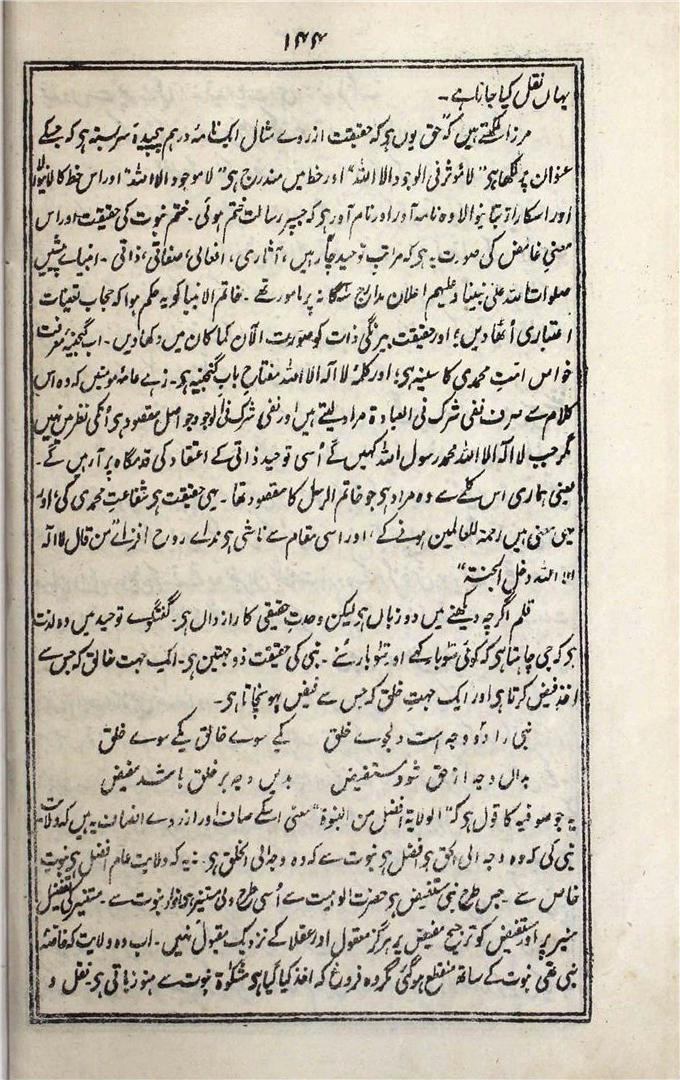 ۱۴۴
یہاں نقل کیا جاتا ہے۔
مرزا لکھتے ہیں کہ "حق یوں ہی کہ حقیقت ازروے مثال ایک نامۂ درہم پیچیدۂ سربستہ ہی کہ جسکے
عنوان پر لکھا ہی "لا موثر فی الوجود الا اللہ" اور خط میں مندرج ہی "لا موجود الا اللہ" اور اس خط کا لانیوالا
اور اسکا راز بتانیوالا وہ نامہ آور اور نام آور ہی کہ جسپر رسالت ختم ہوئی۔ ختم نبوت کی حقیقت اور اس
معنیِ غامض کی صورت یہ ہی کہ مراتب توحید چار ہیں، آثاری، افعالی، صفاتی، ذاتی۔ انبیاے پیشیں
صلوات اللہ علیٰ نبینا و علیہم اعلان مدارج سہ گانہ پر مامور تھے۔ خاتم الانبیا کو یہ حکم ہوا کہ حجاب تعینات
اعتباری اُٹھا دیں؛ اور حقیقت بیرنگیِ ذات کو صورت الآن کما کان میں دکھا دیں۔ اب گنجینۂ معرفت
خواص امتِ محمدی کا سینہ ہی؛ اور کلمۂ لا الہ الا اللہ مفتاحِ بابِ گنجینہ ہی۔ زہے عامۂ مومنیں کہ وہ اس
کلام سے صرف نفی شرک فی العبادۃ مراد لیتے ہیں اور نفی شرک فی الوجود جو اصل مقصود ہی اُنکی نظر میں نہیں
مگر جب لا الہ الا اللہ محمد رسول اللہ کہیں گے اُسی توحید ذاتی کے اعتقاد کی قدمگاہ پر آ رہیں گے۔
یعنی ہماری اس کلمے سے وہ مراد ہی جو خاتم الرسل کا مقصود تھا۔ یہی حقیقت ہی شفاعتِ محمدی کی؛ اور
یہی معنی ہیں رحمۃ للعالمین ہونے کے؛ اور اسی مقام سے ناشی ہی نداے روح افزاے "من قال لا الہ
الا اللہ دخل الجنۃ"
قلم اگرچہ دیکھنے میں دو زباں ہی لیکن وحدتِ حقیقی کا رازداں ہی۔ گفتگوے توحید میں وہ لذت
ہی کہ جی چاہتا ہی کہ کوئی سو بار کہے اور سو بار سُنے۔ نبی کی حقیقت ذوجہتین ہی۔ ایک جہت خالق کہ جس سے
اخذ فیض کرتا ہی اور ایک جہتِ خلق کہ جس سے فیض پہونچاتا ہی۔
نبی را دو وجہ است دلجوے خلق یکے سوے خالق یکے سوے خلق
بداں وجہ از حق شود مستفیض بدیں وجہ بر خلق باشد مفیض
یہ جو صوفیہ کا قول ہی کہ "الولایۃ افضل من النبوۃ" معنی اسکے صاف اور ازروے انصاف یہ ہیں کہ ولایت
نبی کی کہ وہ وجہ الی الحق ہی افضل ہی نبوت سے کہ وہ وجہ الی الخلق ہی۔ نہ یہ کہ ولایتِ عام افضل ہی نبوتِ
خاص سے۔ جس طرح نبی مستفیض ہی حضرت الوہیت سے اُسی طرح ولی مستنیر ہی انوار نبوت سے۔ مستنیر کی تفضیل
منیر پر اور مستفیض کو ترجیح مفیض پر ہرگز معقول اور عقلا کے نزدیک مقبول نہیں۔ اب وہ ولایت کہ خاصۂ
نبی تھی نبوت کے ساتھ منقطع ہو گئی مگر وہ فروغ کہ اخذ کیا گیا ہی مشکوٰۃ نبوت سے ہنوز باقی ہی۔ نقل و